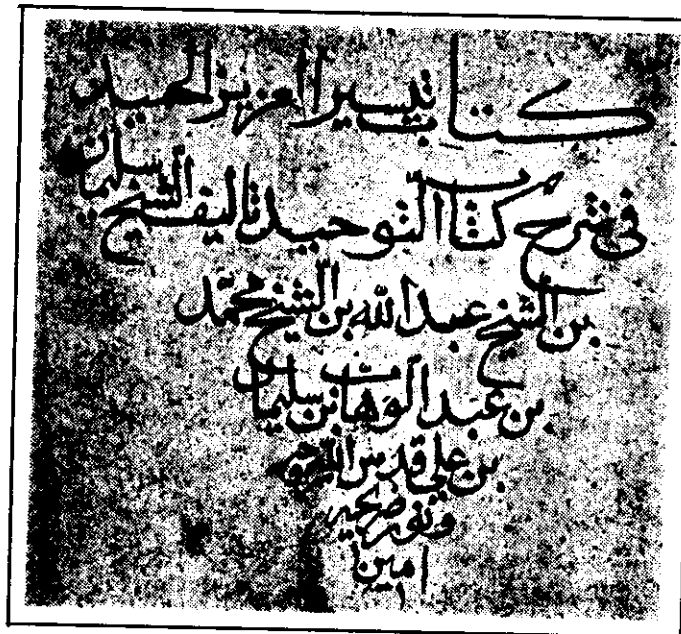 كتاب تيسير العزيز الحميد
في شرح كتاب التوحيد تاليف الشيخ سليمان
بن الشيخ عبدالله بن الشيخ محمد
بن عبد الوهاب بن سليمان
بن علي قدس الله روحه
ونور ضريحه
امين